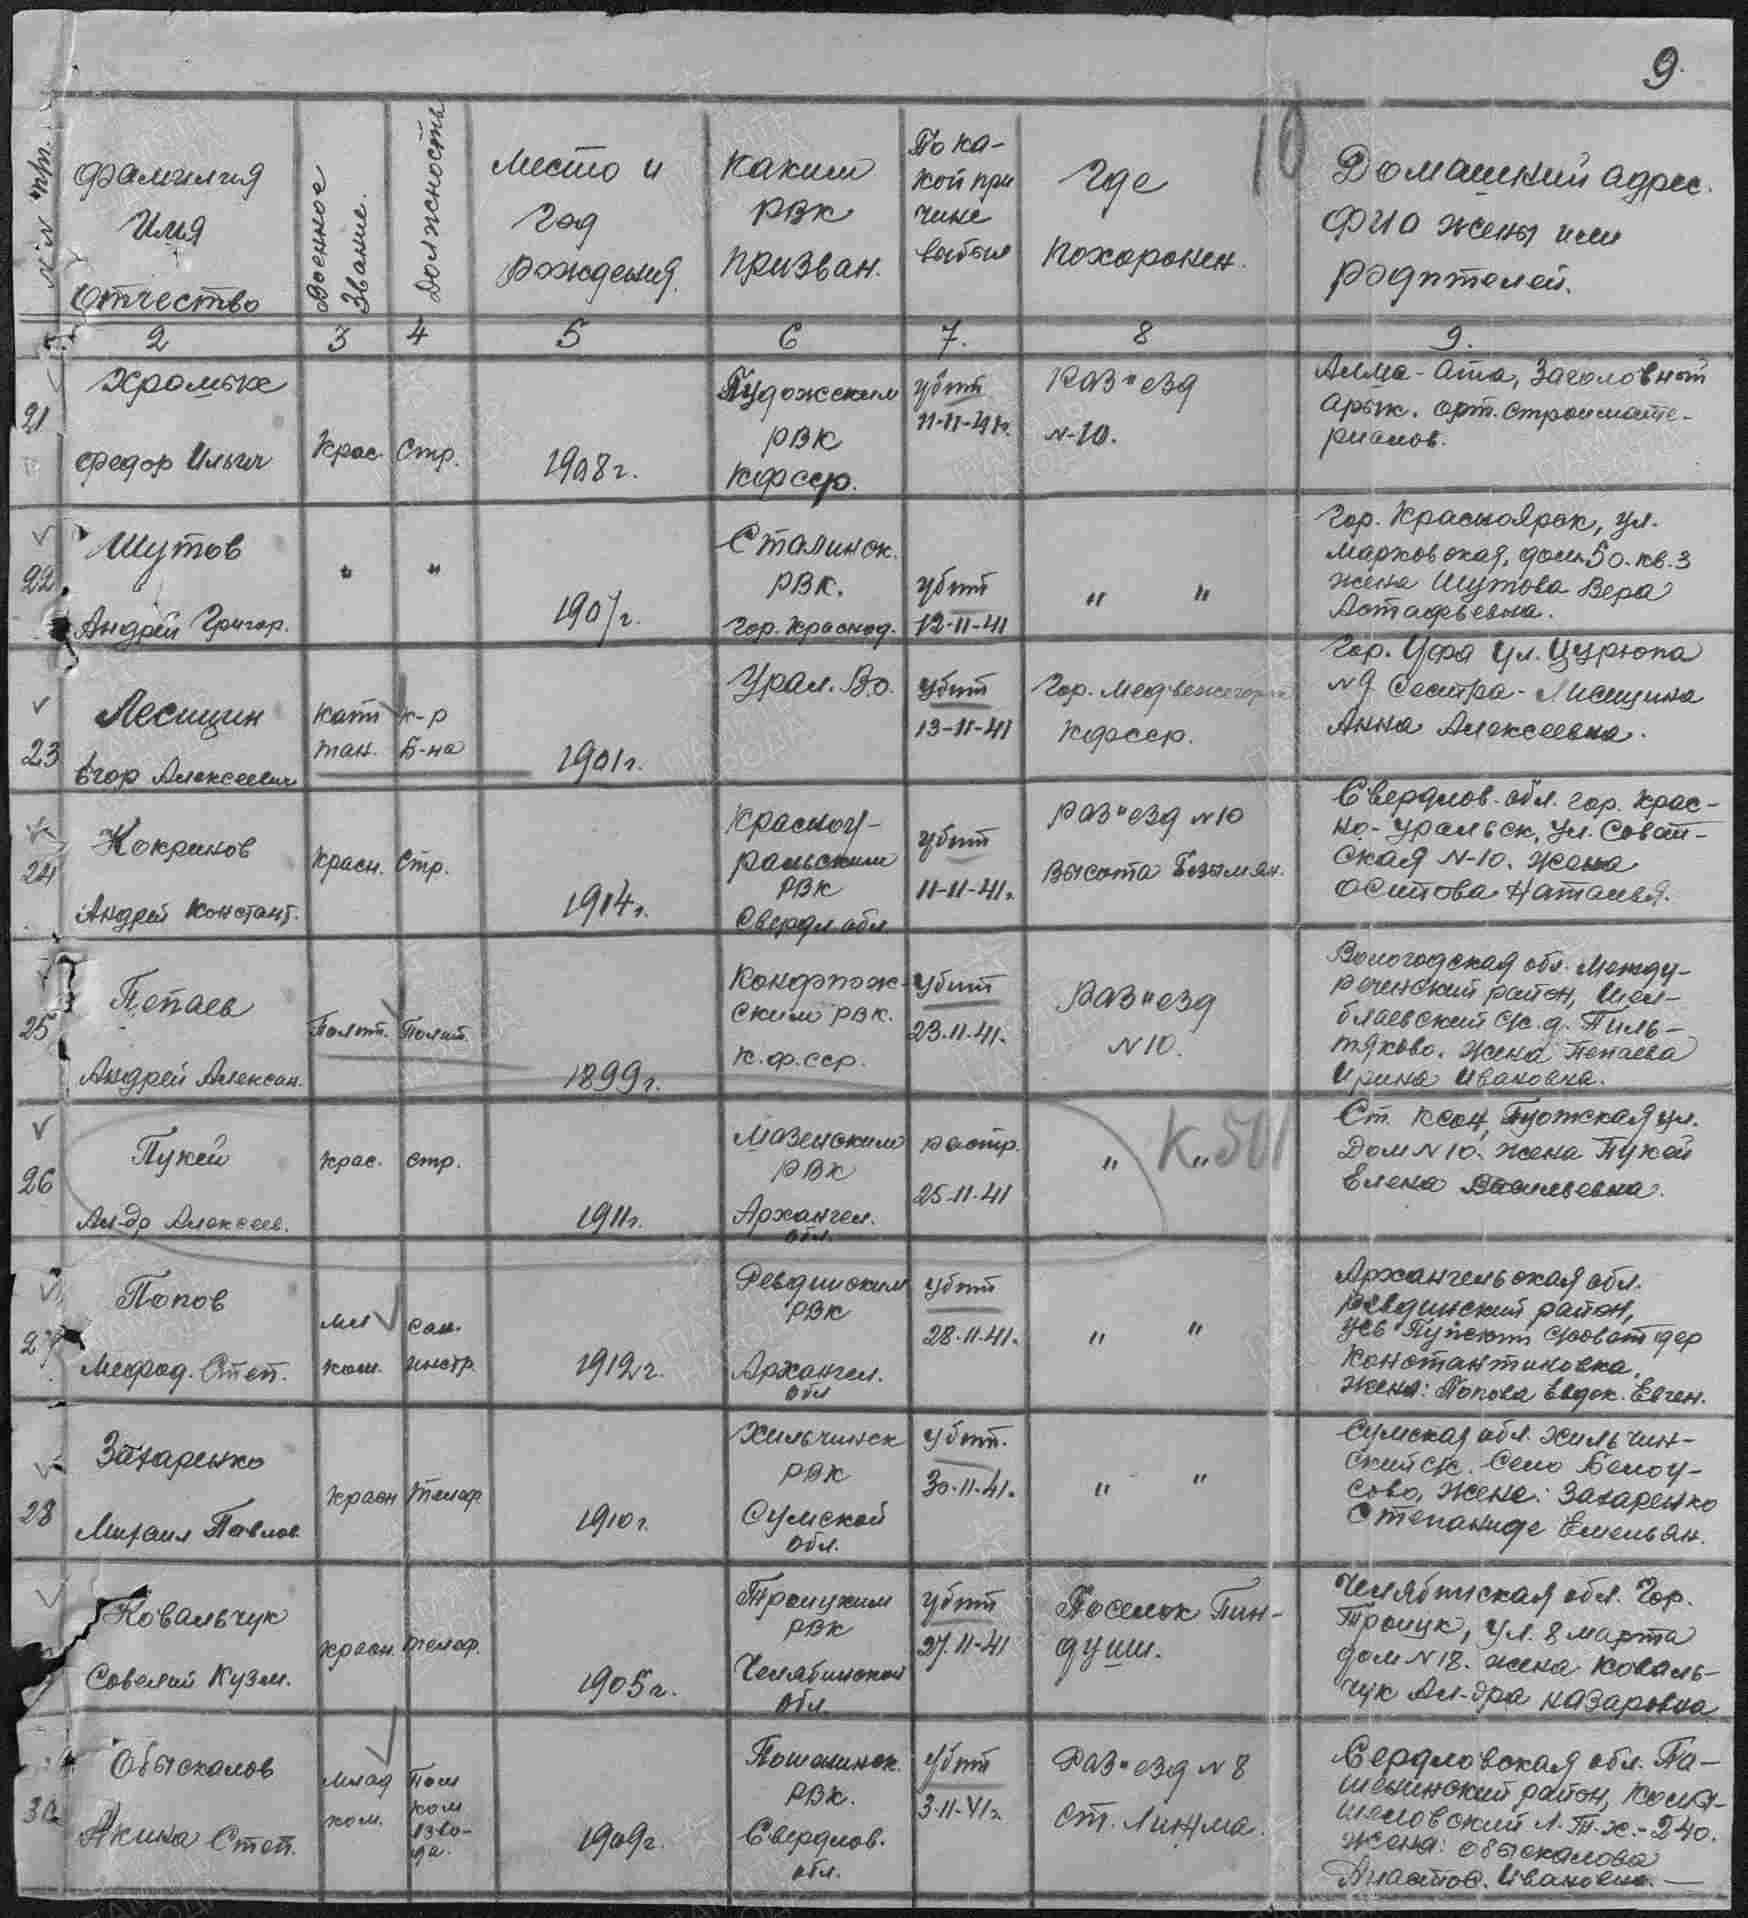 9.
10
№№ п/п.
Фамилия
Имя
Отчество
Военное
Звание.
Должность
Место и
Год
рождения.
Каким
РВК
призван.
По ка-
кой при
чине
выбыл
Где
похоронен.
Домашний адрес.
ФИО жены или
родителей.
2 3 4 5 6 7. 8 9.
21
Федор Ильич
Крас. Стр.
1908 г.
Пудожским
РВК
КФССР.
убит
11-11-41г.
Раз"езд
N-10.
Алма-Ата, Заголовный
Арык. арт. строймате-
риалов.
22
Шутов
Андрей Григор.
" "
1907г.
Сталинск.
РВК.
Гор. Краснод.
убит
12-11-41
" "
Гор. Красноярск, ул.
Марковская, дом 50. кв. 3
жена Шутова Вера
Астафьевна.
23
Лесицин
Егор Алексеевич
Капи
тан.
К-р
Б-на
1901г.
Урал. В.О.
убит
13-11-41
Гор. Медвежегорск
КФССР.
Гор. Уфа ул. Цурюпа
N9 Сестра - Лисицина
Анна Алексеевна.
24
Кокринов
Андрей Констант.
Красн. Стр.
1914г.
Красноу-
ральским
РВК
Свердл обл.
убит
11-11-41г.
Раз"езд N10
Высота Безымян.
Свердлов. обл. гор. Крас-
но-Уральск, ул. Совет-
ская N-10. Жена
Осипова Наталья.
25
Пепаев
Андрей Алексан.
Полит. Полит.
1899г.
Кондпож-
ским РВК.
К.Ф.ССР.
убит
23.11.41.
Раз"езд
N10.
Вологодская обл. Между-
реченский район, Шей-
блаевский с/с. д. Пиль-
тяково. Жена Пепаева
Ирина Ивановна.
26
Пукей
Ал-др Алексеев.
Крас. стр.
1911г.
Мезенским
РВК
Архангел.
обл.
расстр.
25-11-41
" "
Ст. Ксон,
ул.
Дом N10. Жена Пукей
Елена Васильевна.
27
Попов
Мефод. Степ.
Мл
ком.
Сан.
инстр.
1912г.
Ревдинским
РВК
Архангел.
обл
убит
28-11-41.
" "
Архангельская обл.
Ревдинский район,
дер
Константиновка.
Жена: Попова Евдок. Евген.
28
Захаренко
Михаил Павлов.
Красн Телеф
1910г.
Хильчинск
РВК
Сумской
обл.
убит.
30-11-41.
" "
Сумская обл. Хильчин-
ский с/с. Село Белоу-
сово, жена: Захаренко
Степанида Емельян.
Ковальчук
Совелий Кузм.
Красн. телеф.
1905г.
Троицким
РВК
Челябинской
обл.
убит
27.11-41
Поселок Пин-
души.
Челябинская обл. Гор.
Троицк, ул. 8 марта
дом N18. жена Коваль-
чук Ал-дра Назаровна
30
Обыскалов
Акина Степ.
Млад
ком.
Пом
ком
взво-
да.
1909г.
Пошенинск.
РВК.
Свердлов.
обл.
убит
3-11-41г.
Раз"езд N8
ст. Лижма.
Свердловская обл. Па-
шенинский район,
Л.Т.Х.-240.
Жена: Обыскалова
Анастас. Ивановна.